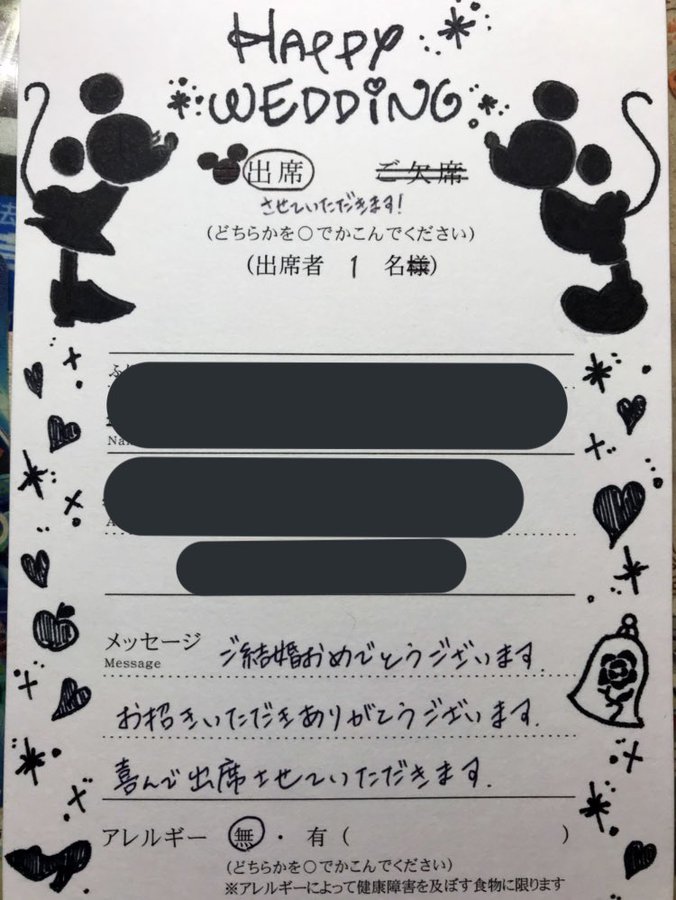 HAPPY
WEDDING
出席 ご欠席
させていただきます!
(どちらかを○でかこんでください)
(出席者 1 名様)
メッセージ ご結婚おめでとうございます.
Message
お招きいただきありがとうございます.
喜んで出席させていただきます.
アレルギー 無・有( )
(どちらかを○でかこんでください)
※アレルギーによって健康障害を及ぼす食物に限ります